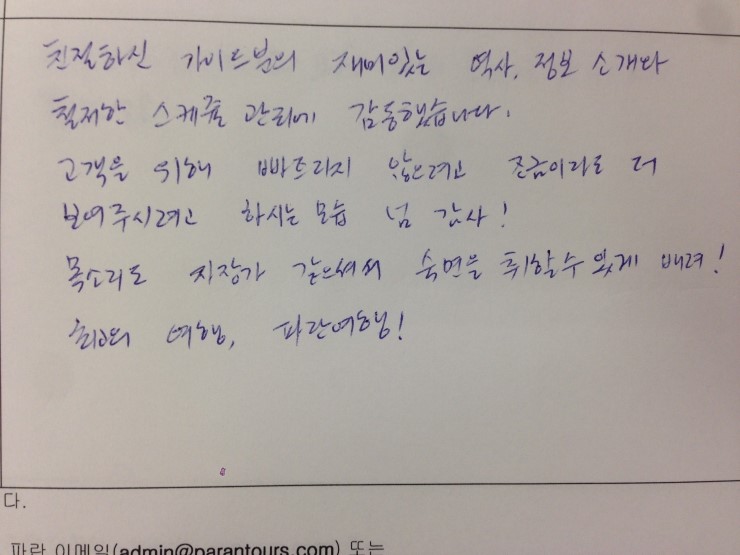 친절하신 가이드분의 재미있는 역사, 정보 소개와
철저한 스케쥴 관리에 감동했습니다.
고객을 위해 빠트리지 않으려고 조금이라도 더
보여주시려고 하시는 모습 넘 감사!
목소리도 자장가 같으셔서 숙면을 취할 수 있게 배려!
최고의 여행, 파란여행!
다.
파란 이메일(admin@parantours.com) 또는